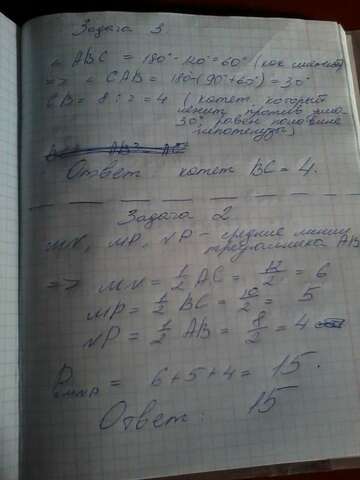 Задача 3
∠ ABC = 180° - 120° = 60° (как смежные)
=> ∠ CAB = 180-(90°+60°) = 30°
CB = 8 : 2 = 4 ( катет, который
лежит против угла
30° равен половине
гипотенузы)
Ответ катет BC = 4.
Задача 2
MN, MP, NP - средние линии
треугольника AB
=> MN = 1/2 AC = 12/2 = 6
MP = 1/2 BC = 10/2 = 5
NP = 1/2 AB = 8/2 = 4
= 6+5+4 = 15.
Ответ: 15